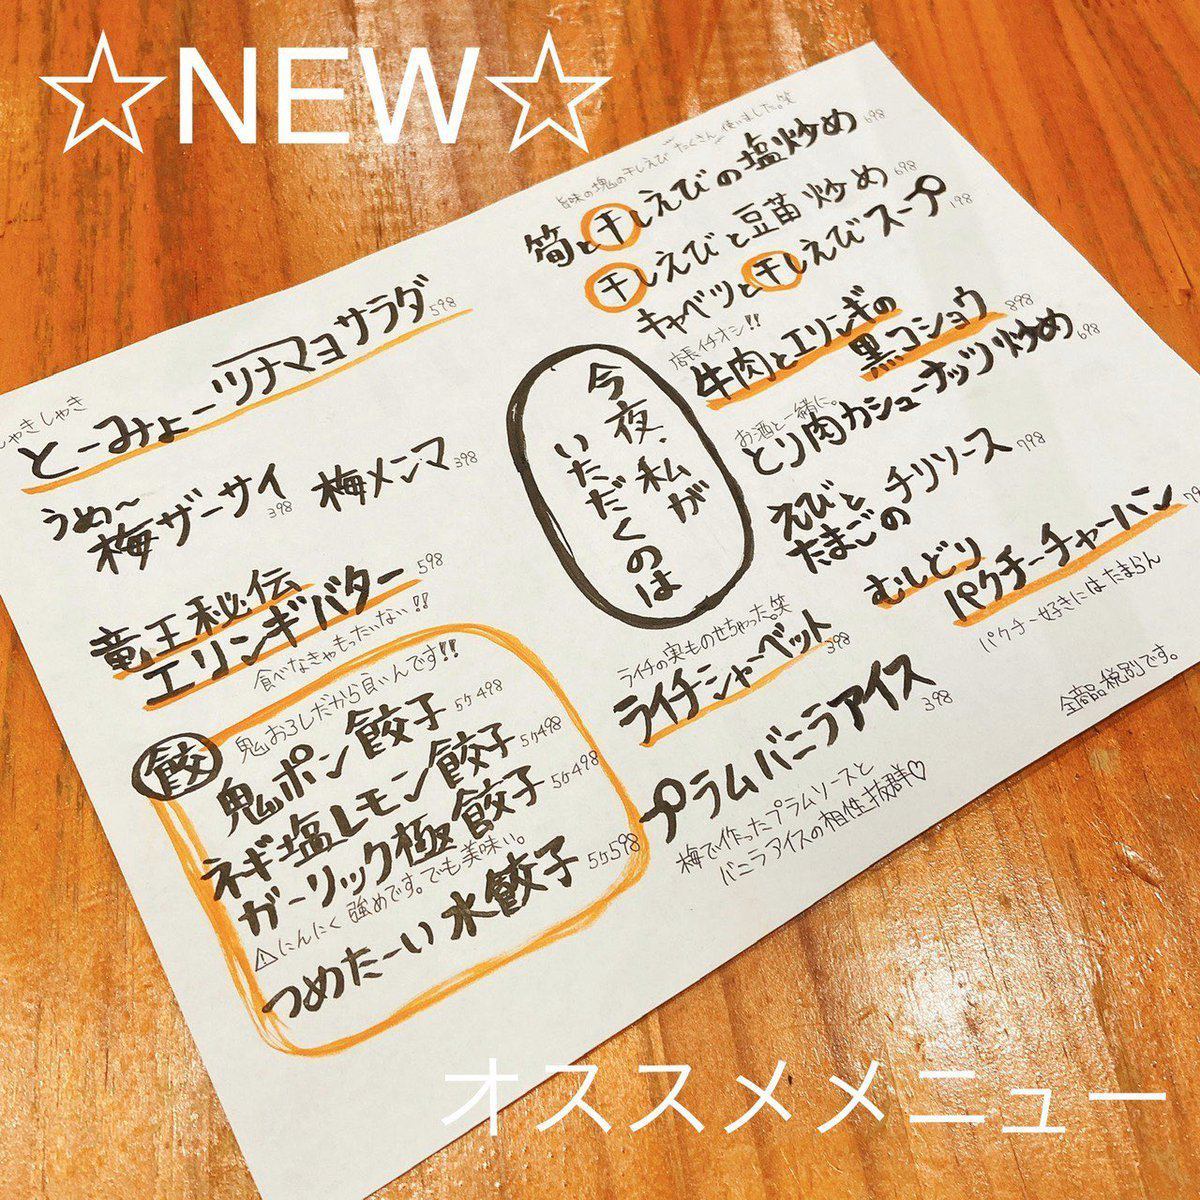 ☆NEW☆
しゃきしゃき
とーみょーツナマヨサラダ 598
うめ〜
梅ザーサイ 398 梅メンマ 398
竜王秘伝
エリンギバター 598
食べなきゃもったいない!!
餃
鬼おろしだから良いんです!!
鬼ポン餃子 5ケ498
ネギ塩レモン餃子 5ケ498
ガーリック極餃子 5ケ498
⚠にんにく強めです。でも美味い。
つめたーい水餃子 5ケ598
今夜、私が
いただくのは
旨味の塊の干しえび たくさん使いました。笑
筍と干しえびの塩炒め 698
干しえびと豆苗炒め 698
キャベツと干しえびスープ 198
店長イチオシ!!
牛肉とエリンギの
黒コショウ 898
お酒と一緒に。
とり肉カシューナッツ炒め 698
えびと
たまごのチリソース 798
むしどり
パクチーチャーハン
パクチー好きにはたまらん
ライチの実ものせちゃった。笑
ライチシャーベット 398
プラムバニラアイス 398
梅で作ったプラムソースと
バニラアイスの相性抜群♡
全商品税別です。
オススメメニュー